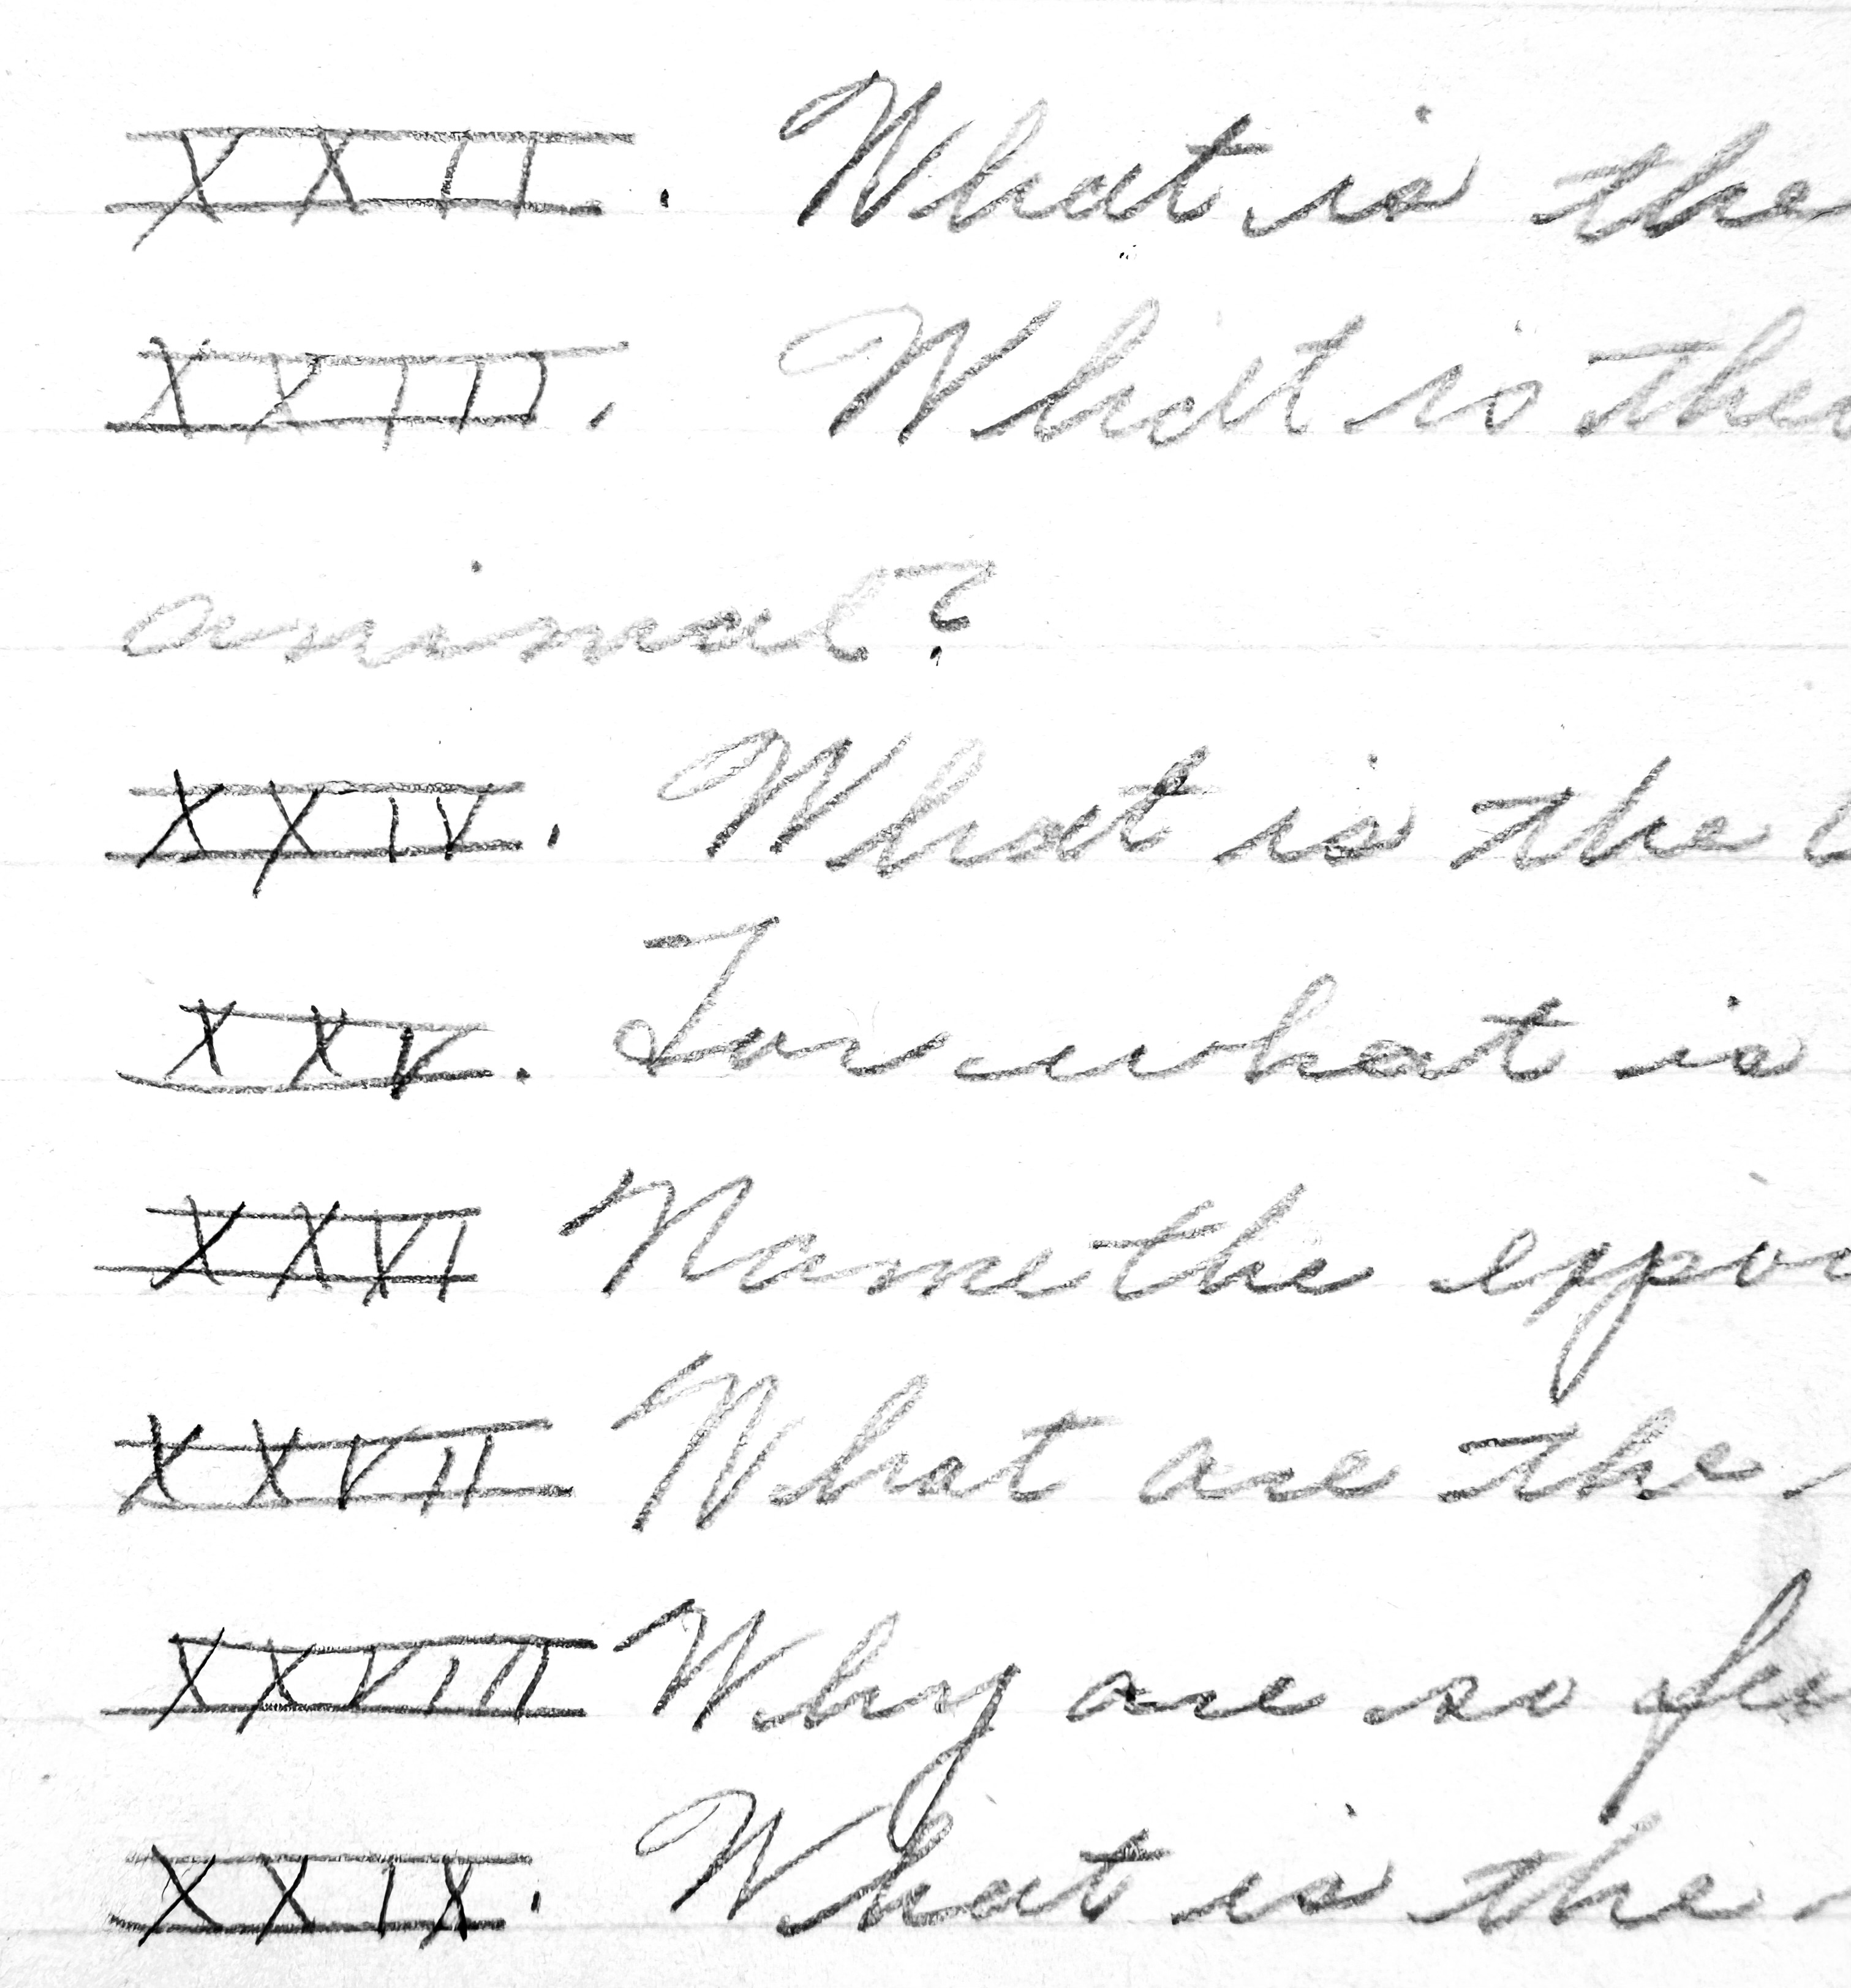 XXII. What is the
XXIII. What is the
animal?
XXIV. What is the
XXV. For what is
XXVI Name the
XXVII What are the
XXVIII Why are so
XXIX. What is the